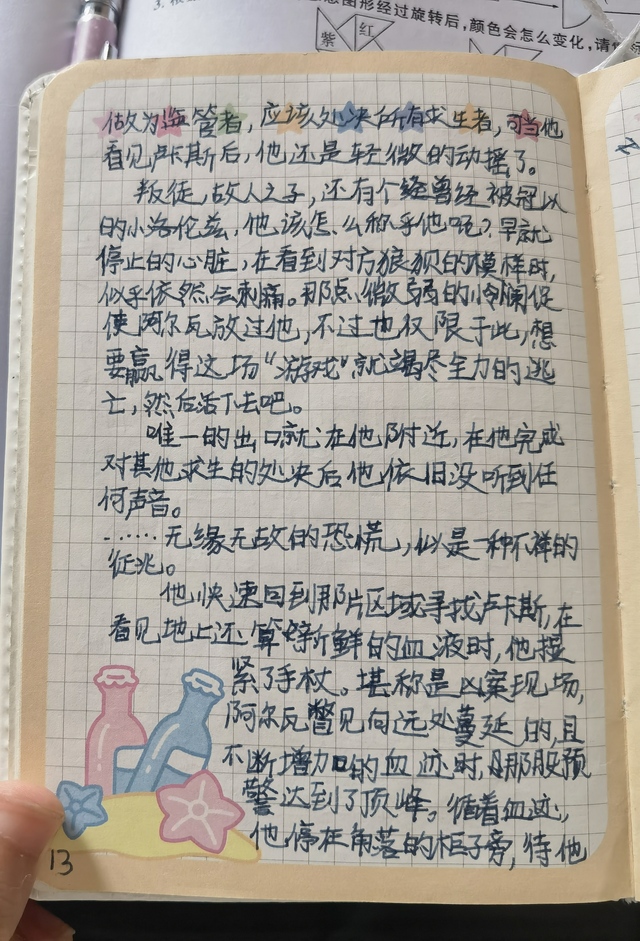 3.
意图形经过旋转后，颜色会怎么变化，请你
紫
红
做为监管者，应该处决所有求生者，可当他
看见卢卡斯后，他还是轻微的动摇了。
叛徒，故人之子，还有个经曾经被冠以
的小洛伦兹，他该怎么称乎他呢？早就
停止的心脏，在看到对方狼狈的模样时，
似乎依然会刺痛。那点微弱的怜悯促
使阿尔瓦放过他，不过也仅限于此，想
要赢得这场“游戏”就竭尽全力的逃
亡，然后活下去吧。
唯一的出口就在他附近，在他完成
对其他求生的处决后他依旧没听到任
何声音。
……无缘无故的恐慌，似是一种不祥的
征兆。
他快速回到那片区域寻找卢卡斯，在
看见地上还算新鲜的血液时，他握
紧了手杖。堪称是凶案现场，
阿尔瓦瞥见向远处蔓延的，且
不断增加的血迹时，那股预
警达到了顶峰。循着血迹，
他停在角落的柜子旁，待他
13